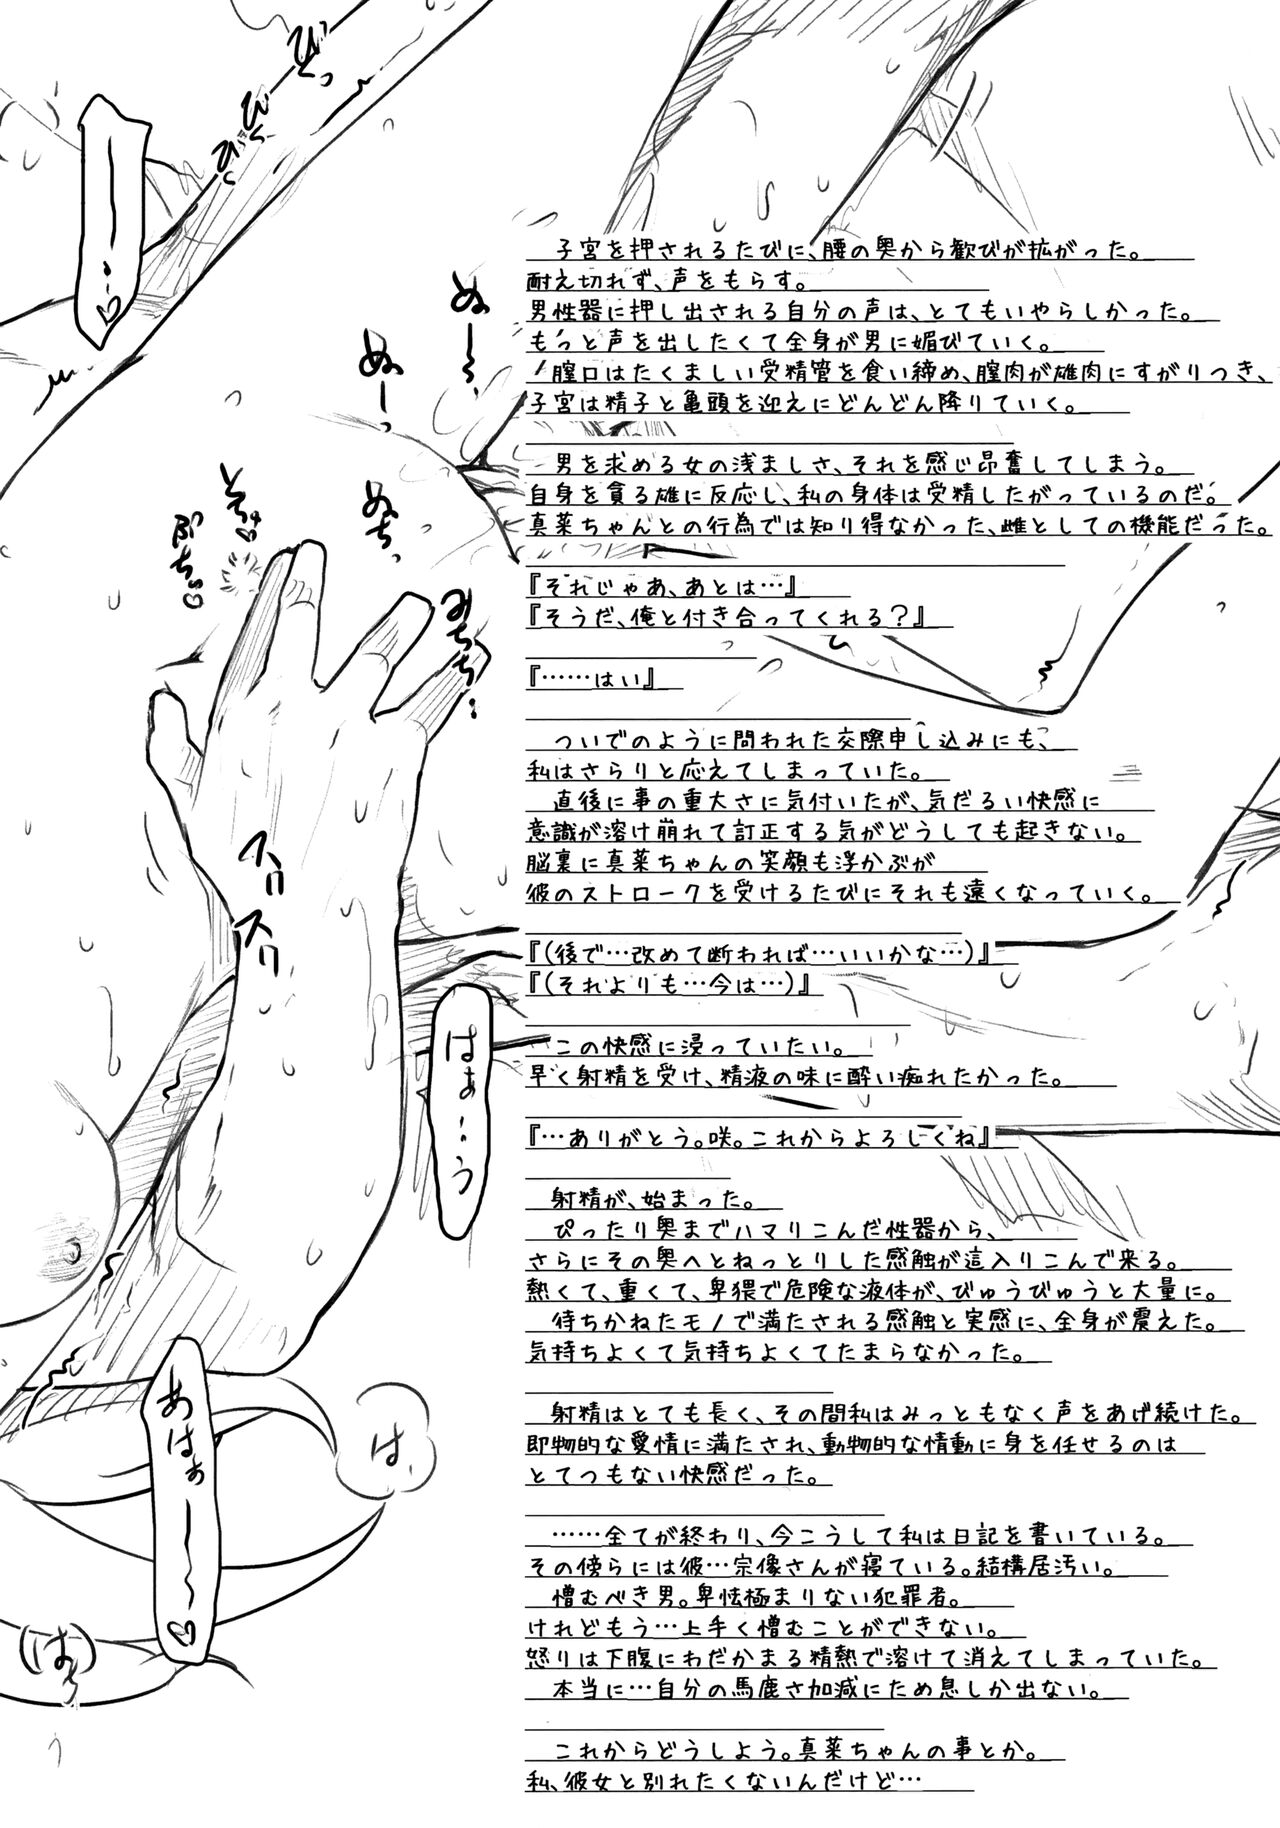 子宮を押されるたびに、腰の奥から歓びが拡がった。
耐え切れず、声をもらす。
男性器に押し出される自分の声は、とてもいやらしかった。
もっと声を出したくて全身が男に媚びていく。
膣口はたくましい受精管を食い締め、膣肉が雄肉にすがりつき、
子宮は精子と亀頭を迎えにどんどん降りていく。
男を求める女の浅ましさ、それを感じ昂奮してしまう。
自身を貪る雄に反応し、私の身体は受精したがっているのだ。
真菜ちゃんとの行為では知り得なかった、雌としての機能だった。
『それじゃあ、あとは…』
『そうだ、俺と付き合ってくれる？』
『……はい』
ついでのように問われた交際申し込みにも、
私はさらりと応えてしまっていた。
直後に事の重大さに気付いたが、気だるい快感に
意識が溶け崩れて訂正する気がどうしても起きない。
脳裏に真菜ちゃんの笑顔も浮かぶが
彼のストロークを受けるたびにそれも遠くなっていく。
『（後で…改めて断われば…いいかな…）』
『（それよりも…今は…）』
この快感に浸っていたい。
早く射精を受け、精液の味に酔い痴れたかった。
『…ありがとう。咲。これからよろしくね』
射精が、始まった。
ぴったり奥までハマりこんだ性器から、
さらにその奥へとねっとりした感触が這入りこんで来る。
熱くて、重くて、卑猥で危険な液体が、びゅうびゅうと大量に。
待ちかねたモノで満たされる感触と実感に、全身が震えた。
気持ちよくて気持ちよくてたまらなかった。
射精はとても長く、その間私はみっともなく声をあげ続けた。
即物的な愛情に満たされ、動物的な情動に身を任せるのは
とてつもない快感だった。
……全てが終わり、今こうして私は日記を書いている。
その傍らには彼…宗像さんが寝ている。結構居汚い。
憎むべき男。卑怯極まりない犯罪者。
けれどもう…上手く憎むことができない。
怒りは下腹にわだかまる精熱で溶けて消えてしまっていた。
本当に…自分の馬鹿さ加減にため息しか出ない。
これからどうしよう。真菜ちゃんの事とか。
私、彼女と別れたくないんだけど…
ぬ〜〜っ
ぬーっ
ぬちっ
とちゅ♡
ぷちっ♡
みちち…
スリ
スリ
はぁ…う
は、
あはぁ〜〜♡
（はぅ）